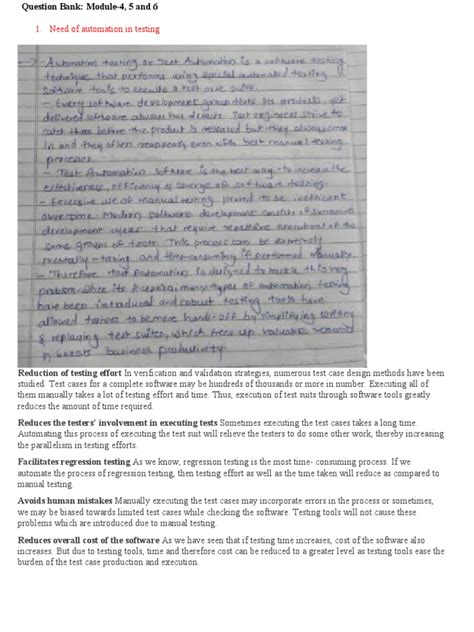 Question Bank: Module-4, 5 and 6
1. Need of automation in testing
→ - Automation testing or Test Automation is a software testing
technique that performs using special automated testing
software tools to execute a test case suite.
- Every software development group tests its products, yet
delivered software always has defects. Test engineers strive to
catch them before the product is released but they always
in and they often reappear, even with best manual testing
processes.
- Test Automation software is the best way to increase the
effectiveness, efficiency & coverage of software testing.
- Excessive use of manual testing proved to be inefficient
over time. Modern software development consists of
development cycles that require repetitive execution of the
same groups of tests. This process can be extremely
mentally - taxing and time-consuming if performed manually.
- Therefore test Automation is designed to tackle this very
problem. Since its inception, many types of automation testing
have been introduced and robust testing tools have
allowed testers to be more hands-off by simplifying
& replaying test suites, which frees up valuable resources
n boosts business productivity.
Reduction of testing effort In verification and validation strategies, numerous test case design methods have been
studied. Test cases for a complete software may be hundreds of thousands or more in number. Executing all of
them manually takes a lot of testing effort and time. Thus, execution of test suits through software tools greatly
reduces the amount of time required.
Reduces the testers' involvement in executing tests Sometimes executing the test cases takes a long time.
Automating this process of executing the test suit will relieve the testers to do some other work, thereby increasing
the parallelism in testing efforts.
Facilitates regression testing As we know, regression testing is the most time- consuming process. If we
automate the process of regression testing, then testing effort as well as the time taken will reduce as compared to
manual testing.
Avoids human mistakes Manually executing the test cases may incorporate errors in the process or sometimes,
we may be biased towards limited test cases while checking the software. Testing tools will not cause these
problems which are introduced due to manual testing.
Reduces overall cost of the software As we have seen that if testing time increases, cost of the software also
increases. But due to testing tools, time and therefore cost can be reduced to a greater level as testing tools ease the
burden of the test case production and execution.